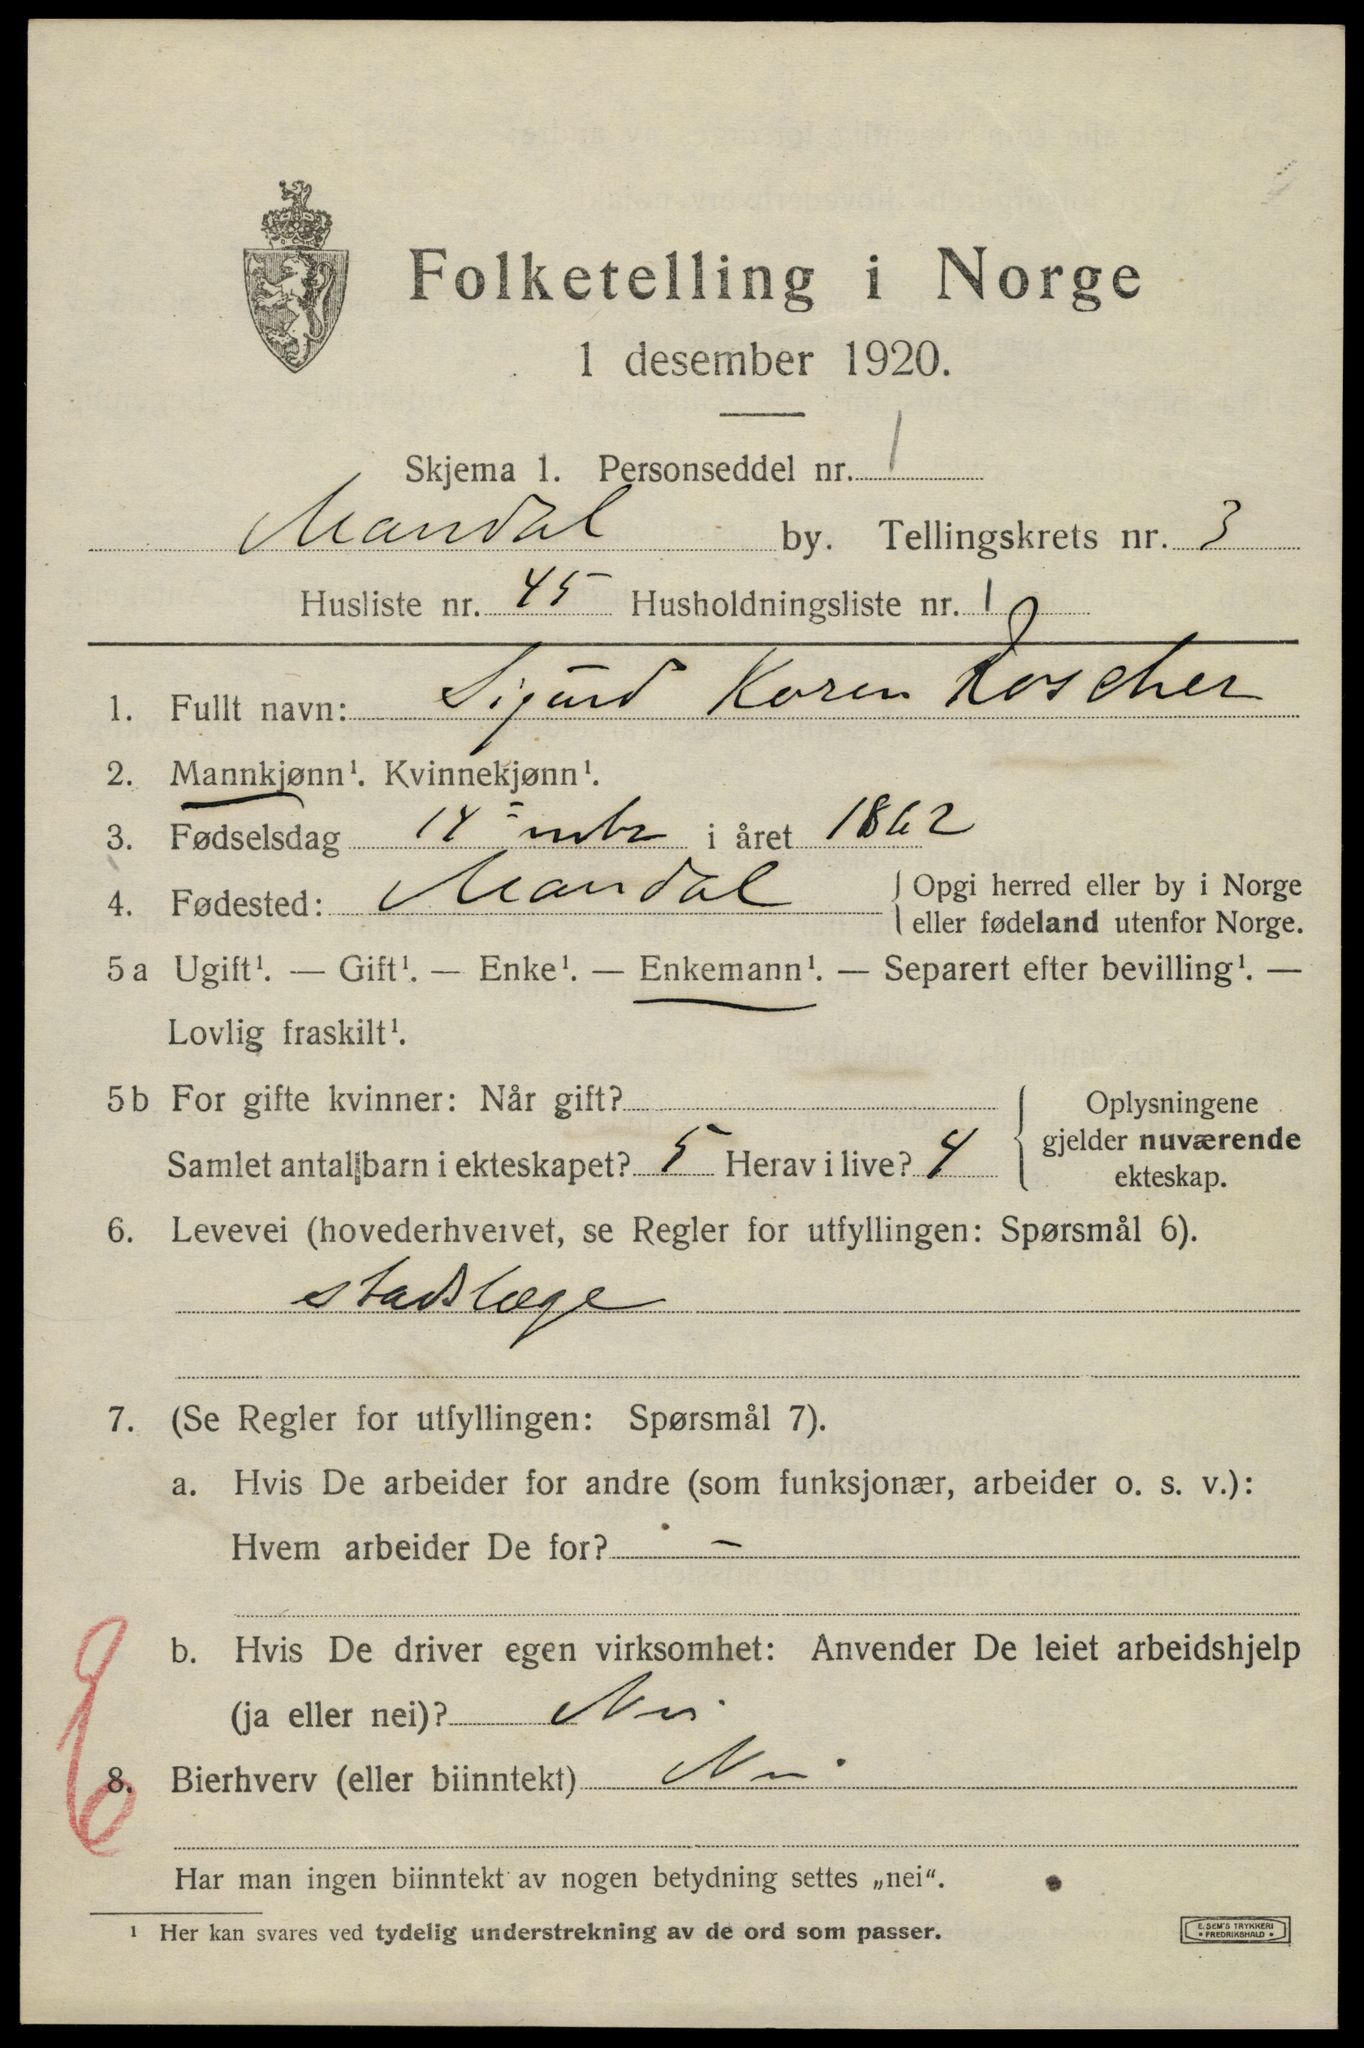 Folketelling i Norge
1 desember 1920.
Skjema 1. Personseddel nr. 1
Mandal by. Tellingskrets nr. 3
Husliste nr. 45 Husholdningsliste nr. 1
1. Fullt navn: Sigurd Koren Roscher
2. Mannkjønn¹. Kvinnekjønn¹.
3. Fødselsdag 14 = i året 1862
4. Fødested: Mandal { Opgi herred eller by i Norge
eller fødeland utenfor Norge.
5 a Ugift¹. — Gift¹. — Enke¹. — Enkemann¹. — Separert efter bevilling¹. —
Lovlig fraskilt¹.
5 b For gifte kvinner: Når gift? { Oplysningene
gjelder nuværende
Samlet antal barn i ekteskapet? 5 Herav i live? 4
ekteskap.
6. Levevei (hovederhvervet, se Regler for utfyllingen: Spørsmål 6).
stadslæge
7. (Se Regler for utfyllingen: Spørsmål 7).
a. Hvis De arbeider for andre (som funksjonær, arbeider o. s. v.):
Hvem arbeider De for? –
b. Hvis De driver egen virksomhet: Anvender De leiet arbeidshjelp
(ja eller nei)? Nei
8. Bierhverv (eller biinntekt) Nei
Har man ingen biinntekt av nogen betydning settes „nei“.
¹ Her kan svares ved tydelig understrekning av de ord som passer.
E. SEM'S TRYKKERI
• FREDRIKSHALD •